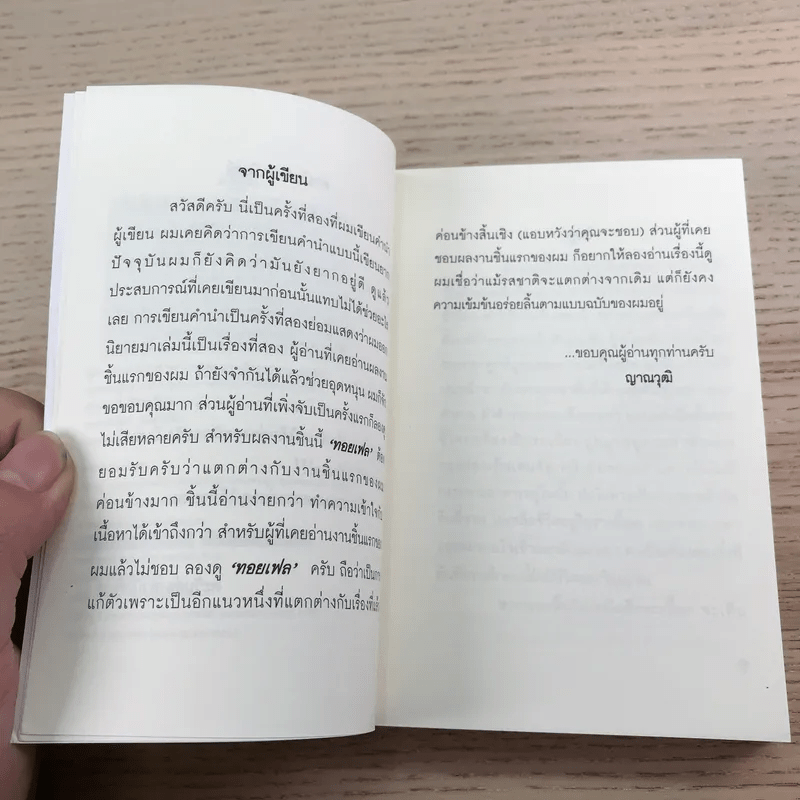 จากผู้เขียน
สวัสดีครับ นี่เป็นครั้งที่สองที่ผมเขียนคำนำ
ผู้เขียน ผมเคยคิดว่าการเขียนคำนำแบบนี้เขียนยาก
ปัจจุบันผมก็ยังคิดว่ามันยังยากอยู่ดี ดูแล้ว
ประสบการณ์ที่เคยเขียนมาก่อนนั้นแทบไม่ได้ช่วยอะไร
เลย การเขียนคำนำเป็นครั้งที่สองย่อมแสดงว่าผมออก
นิยายมาเล่มนี้เป็นเรื่องที่สอง ผู้อ่านที่เคยอ่านผลงาน
ชิ้นแรกของผม ถ้ายังจำกันได้แล้วช่วยอุดหนุน ผมก็
ขอขอบคุณมาก ส่วนผู้อ่านที่เพิ่งจับเป็นครั้งแรกก็ลองดู
ไม่เสียหลายครับ สำหรับผลงานชิ้นนี้ 'ทอยเฟล' ต้อง
ยอมรับครับว่าแตกต่างกับงานชิ้นแรกของผม
ค่อนข้างมาก ชิ้นนี้อ่านง่ายกว่า ทำความเข้าใจกับ
เนื้อหาได้เข้าถึงกว่า สำหรับผู้ที่เคยอ่านงานชิ้นแรกของ
ผมแล้วไม่ชอบ ลองดู 'ทอยเฟล' ครับ ถือว่าเป็นการ
แก้ตัวเพราะเป็นอีกแนวหนึ่งที่แตกต่างกับเรื่องที่แล้ว
ค่อนข้างสิ้นเชิง (แอบหวังว่าคุณจะชอบ) ส่วนผู้ที่เคย
ชอบผลงานชิ้นแรกของผม ก็อยากให้ลองอ่านเรื่องนี้ดู
ผมเชื่อว่าแม้รสชาติจะแตกต่างจากเดิม แต่ก็ยังคง
ความเข้มข้นอร่อยลิ้นตามแบบฉบับของผมอยู่
...ขอบคุณผู้อ่านทุกท่านครับ
ญาณวุฒิ